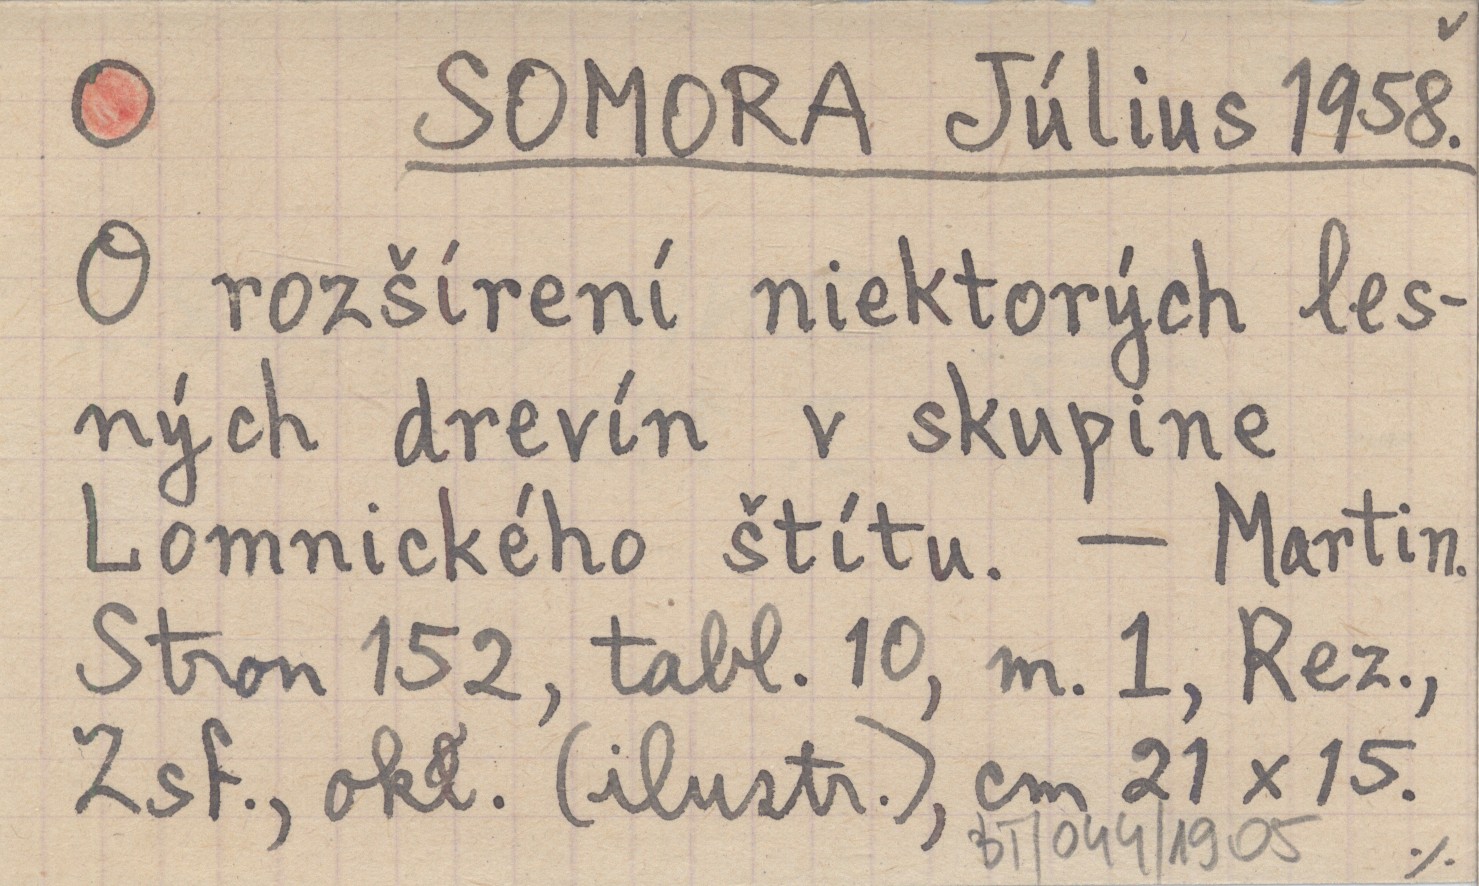 SOMORA Július 1958.
O rozšírení niektorých les-
ných drevín v skupine
Lomnického štítu. — Martin.
Stron 152, tabl. 10, m. 1, Rez.,
Zsf., okł. (ilustr.), cm 21 x 15.
BT/044/1905 ./.